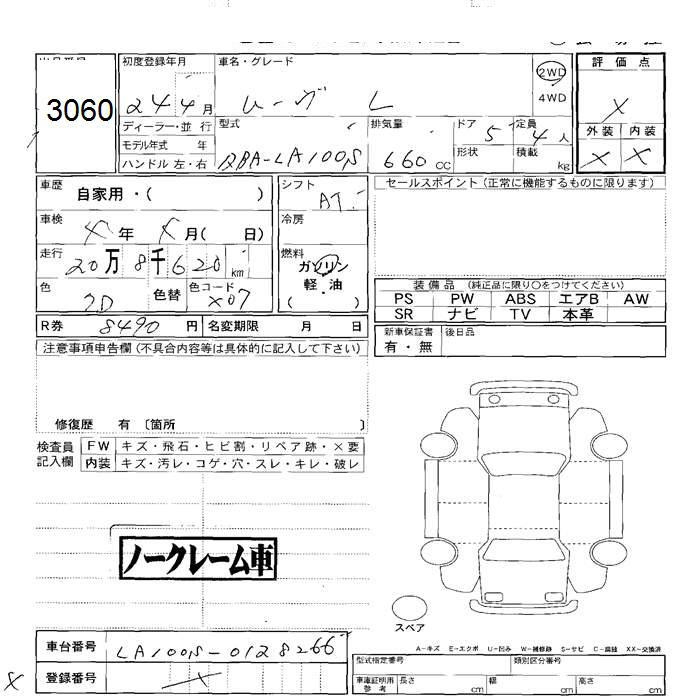 3060
初度登録年月
24年4月
車名・グレード
ムーヴ L
2WD
4WD
評価点
X
外装 内装
X X
ディーラー・並行
モデル年式 年
ハンドル 左・右
型式
DBA-LA100S
排気量
660cc
ドア 5
形状
定員 4人
積載 kg
車歴 自家用・( )
シフト AT
セールスポイント (正常に機能するものに限ります)
車検 X年 X月( 日)
冷房
走行 20万8千620km
燃料
ガソリン
軽・油
( )
色
色替
色コード X07
装備品 (純正品に限り○をつけてください)
PS PW ABS エアB AW
SR ナビ TV 本革
R券 8490円 名変期限 月 日
新車保証書 後日品
有・無
注意事項申告欄 (不具合内容等は具体的に記入して下さい)
修復歴 有 〔箇所 〕
検査員 FW キズ・飛石・ヒビ割・リペア跡・×要
記入欄 内装 キズ・汚レ・コゲ・穴・スレ・キレ・破レ
ノークレーム車
スペア
A-キズ E-エクボ U-凹み W-補修跡 S-サビ C-腐蝕 XX-交換済
車台番号 LA100S-0128266
登録番号 X
X
型式指定番号 類別区分番号
車庫証明用 長さ cm 幅 cm 高さ cm
参考